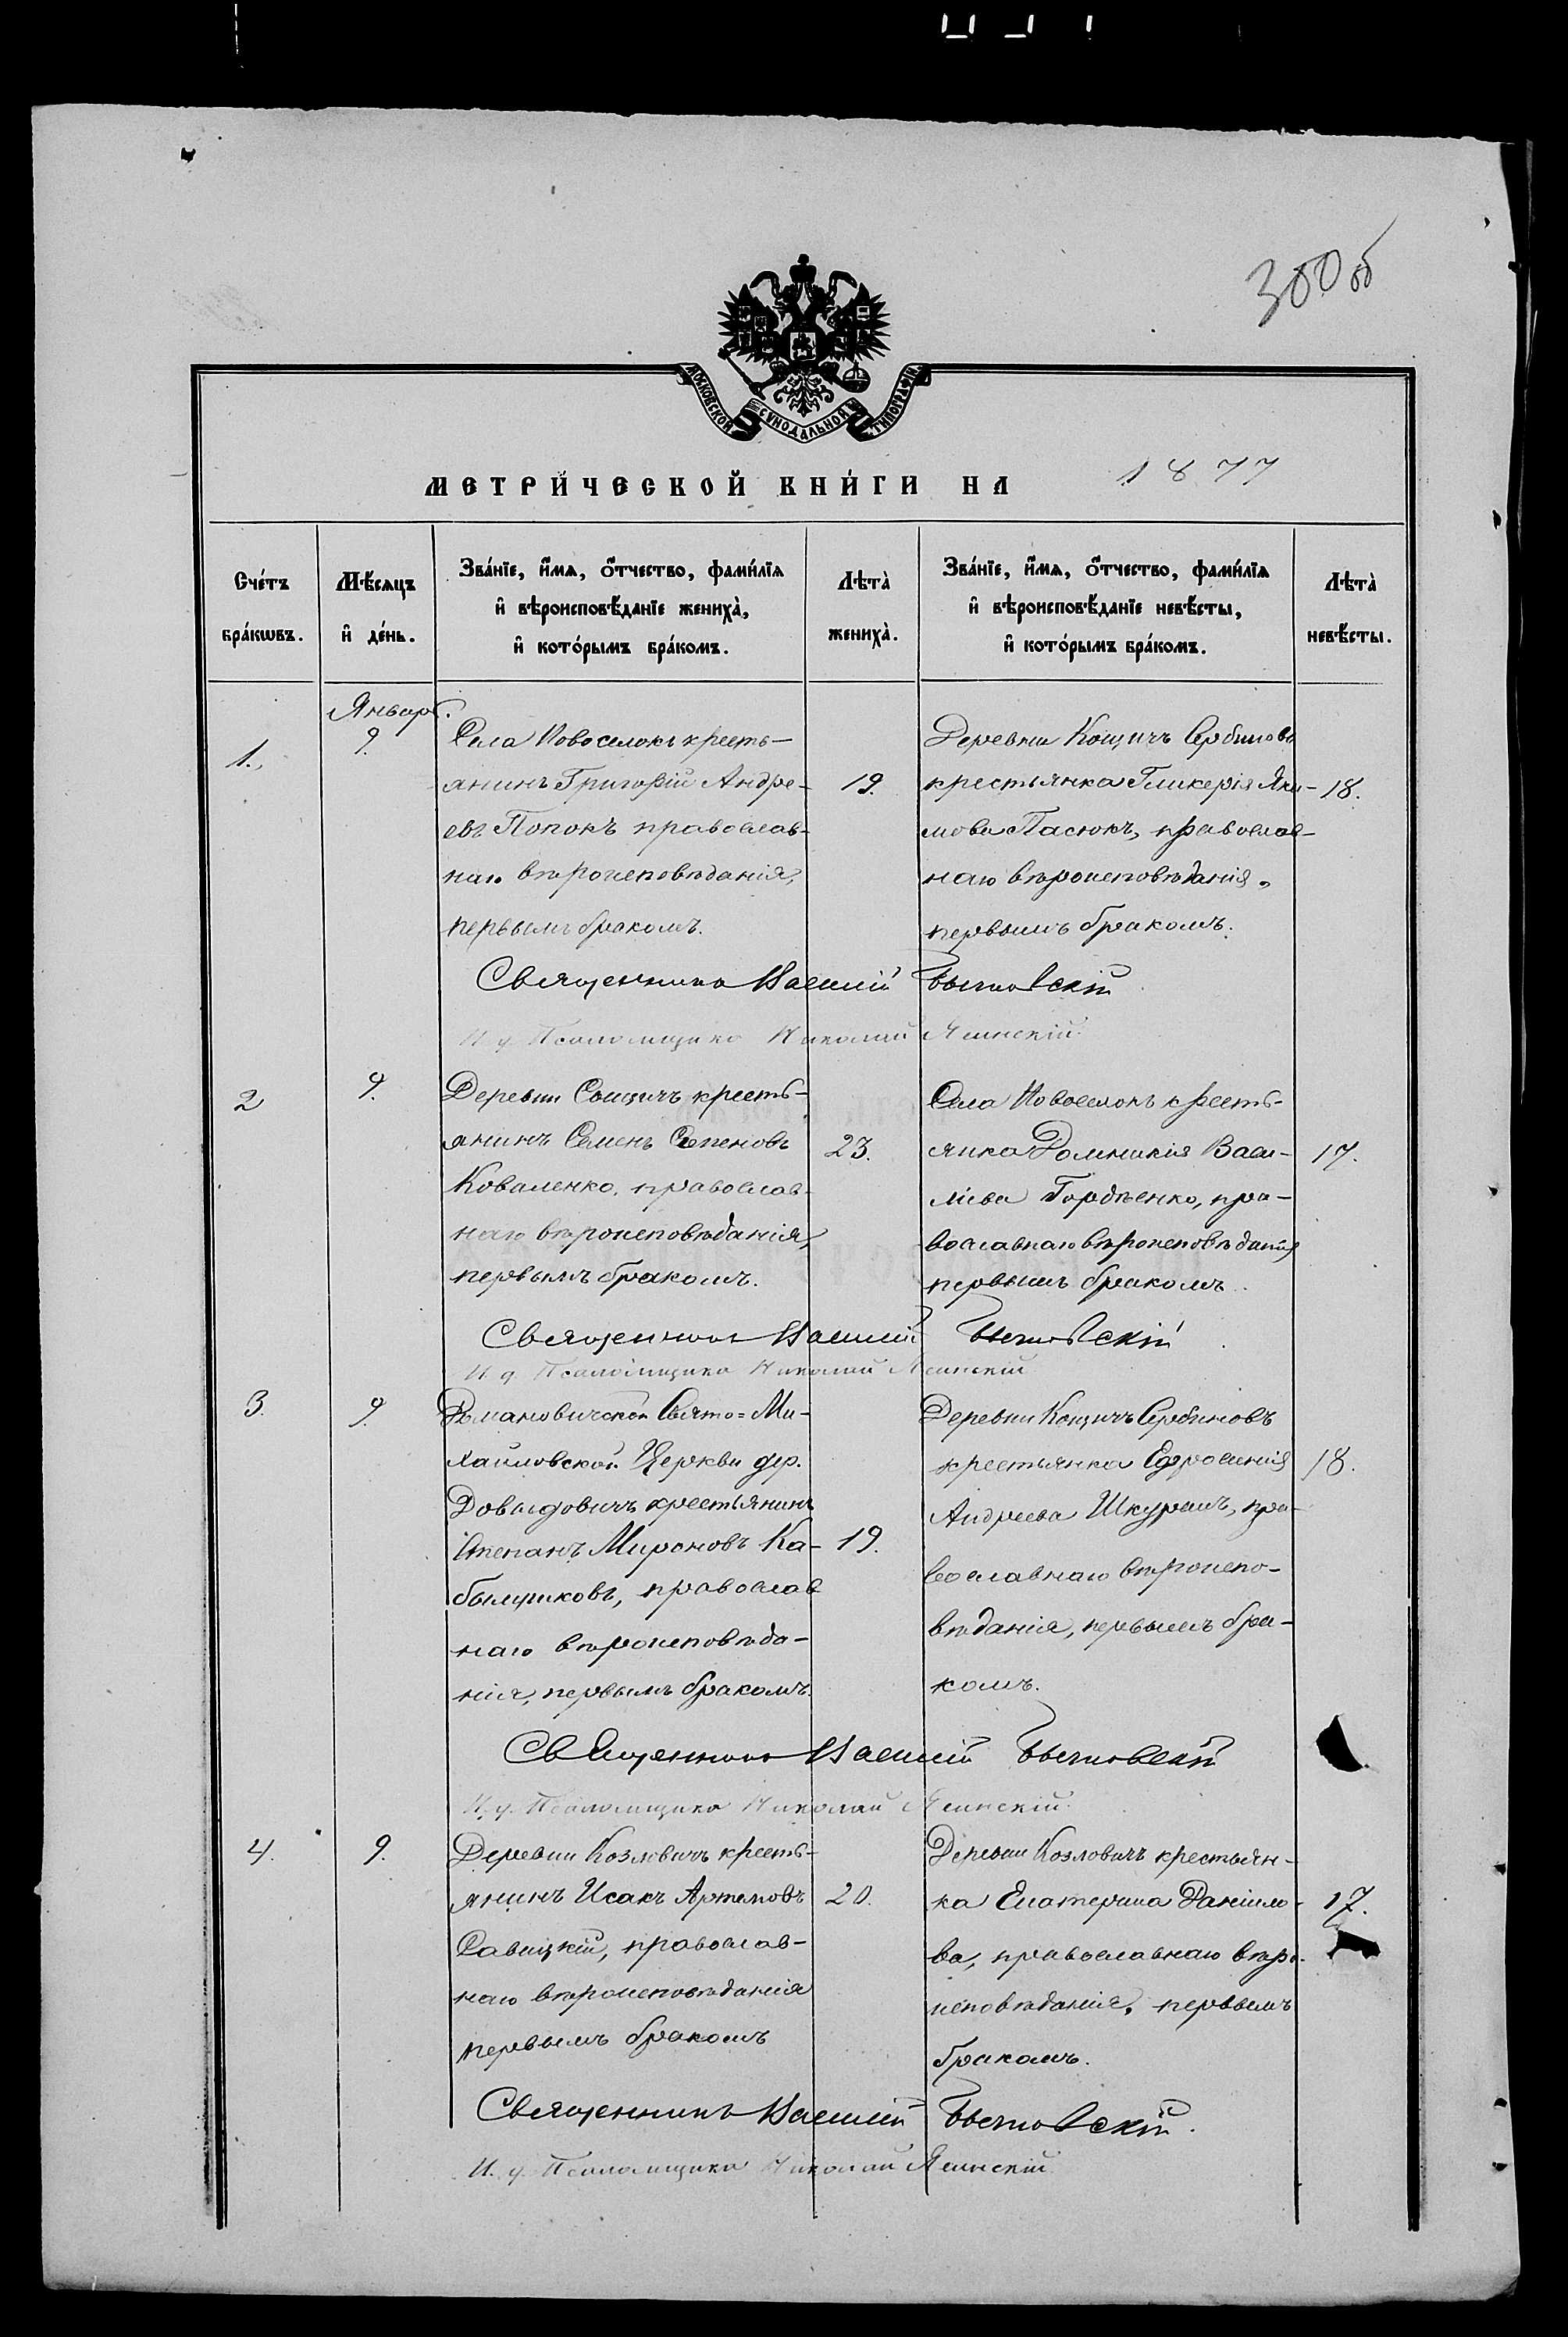 300 об
МОСКОВСКОЙ СѴНОДАЛЬНОЙ ТИПОГРАФІИ
МЕТРИ́ЧЕСКОЙ КНИ́ГИ НА 1877
Счéтъ бра́кωвъ.
Мѣ́сяцъ и҆ де́нь.
Зва́нїе, и҆́мѧ, ѻ҆́тчество, фами́лїѧ
и҆ вѣроисповѣ́данїе жениха̀,
и҆ кото́рымъ бра́комъ.
Лѣта̀ жениха̀.
Зва́нїе, и҆́мѧ, ѻ҆́тчество, фами́лїѧ
и҆ вѣроисповѣ́данїе невѣ́сты,
и҆ кото́рымъ бра́комъ.
Лѣта̀ невѣ́сты.
Январь.
1.
9.
Села Новоселокъ кресть-
янинъ Григорій Андре-
евъ Попокъ православ-
наго вѣроисповѣданія,
первымъ бракомъ.
19.
Деревни Кощичъ Сербиновъ
крестьянка Гликерія Яки-
мова Пасюкъ, православ-
наго вѣроисповѣданія,
первымъ бракомъ.
18.
Священникъ Василій
И. д. Псаломщика Николай Ясинскій
2
9.
Деревни кресть-
янинъ Семенъ Степановъ
Коваленко, православ-
наго вѣроисповѣданія,
первымъ бракомъ.
23.
Села Новоселокъ кресть-
янка Домникія Васи-
ліева Гордѣенко, пра-
вославнаго вѣроисповѣданія
первымъ бракомъ.
17.
Священникъ Василій
И. д. Псаломщика Николай Ясинскій
3.
9.
Романовичской Свято=Ми-
хайловской Церкви дер.
Довыдовичъ крестьянинъ
Степанъ Мироновъ Ка-
былщиковъ, православ
наго вѣроисповѣда-
нія, первымъ бракомъ.
19.
Деревни Кощичъ Сербиновъ
крестьянка Ефросинія
Андреева Шкуратъ, пра-
вославнаго вѣроиспо-
вѣданія, первымъ бра-
комъ.
18.
Священникъ Василій
И. д. Псаломщика Николай Ясинскій
4.
9.
Деревни Козловичъ кресть-
янинъ Исакъ Артемовъ
Савицкій, православ-
наго вѣроисповѣданія
первымъ бракомъ
20.
Деревни Козловичъ крестьян-
ка Екатерина Даніило-
ва, православнаго вѣро-
исповѣданія, первымъ
бракомъ.
17.
Священникъ Василій
И. д. Псаломщика Николай Ясинскій